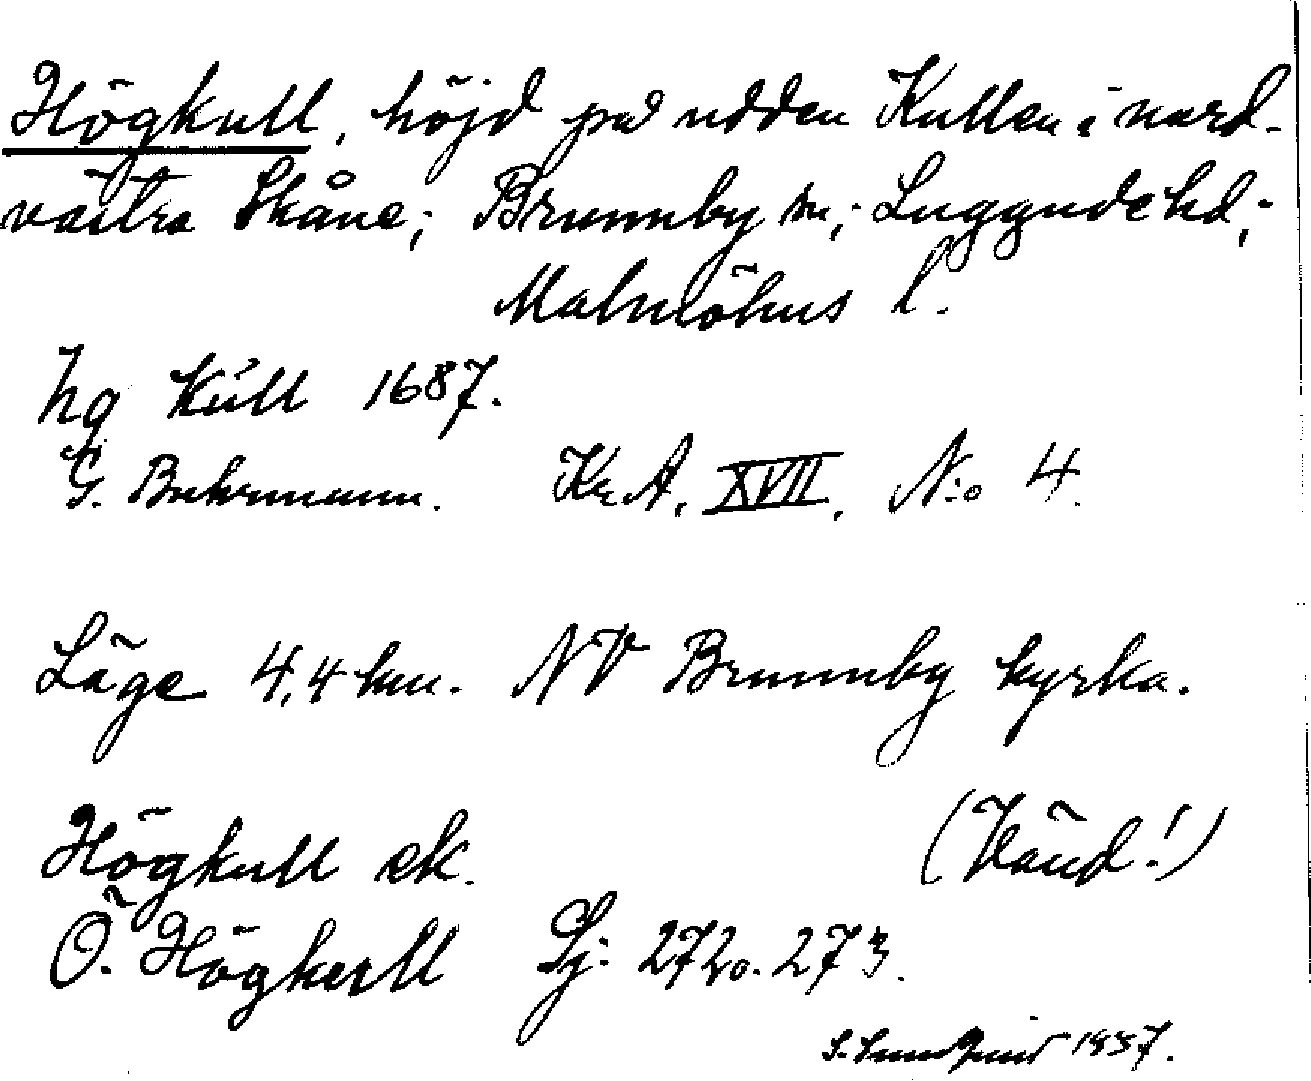 Högkull, höjd på udden Kullen i nord-
västra Skåne; Brunnby sn; Luggude hd;
Malmöhus l.
hg Kull 1687.
G. Buhrmann. Kr.A. XVII, N:o 4.
Läge 4,4 km. NV Brunnby kyrka.
Högkull ek. (Vänd!)
Ö. Högkull Sj: 272 o. 273.
S. Lundquist 1937.